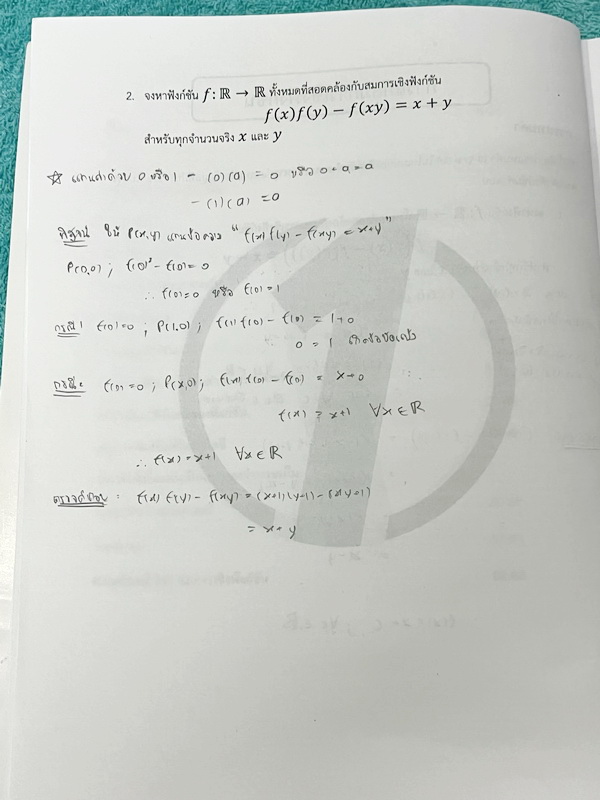 2. จงหาฟังก์ชัน f: ℝ → ℝ ทั้งหมดที่สอดคล้องกับสมการเชิงฟังก์ชัน
f(x)f(y) − f(xy) = x + y
สำหรับทุกจำนวนจริง x และ y
☆ แทนค่าด้วย 0 หรือ 1 - (0)(a) = 0 หรือ 0+a=a
- (1)(a) =
พิสูจน์ ให้ P(x,y) แทนข้อความ "f(x)f(y) - f(xy) = x+y"
P(0,0) ; f(0)² - f(0) = 0
∴ f(0)=0 หรือ f(0)=1
กรณี 1 f(0)=0 ; P(1,0) ; f(1)f(0) - f(0) = 1+0
0 = 1 เกิดข้อขัดแย้ง
กรณี 2 ; P(x,0) ; f(x)f(0) - f(0) = x+0
f(x) = x+1 ∀x∈ℝ
∴ f(x) = x+1 ∀x∈ℝ
ตรวจคำตอบ : f(x)f(y) - f(xy) = (x+1)(y+1) - (xy+1)
= x+y